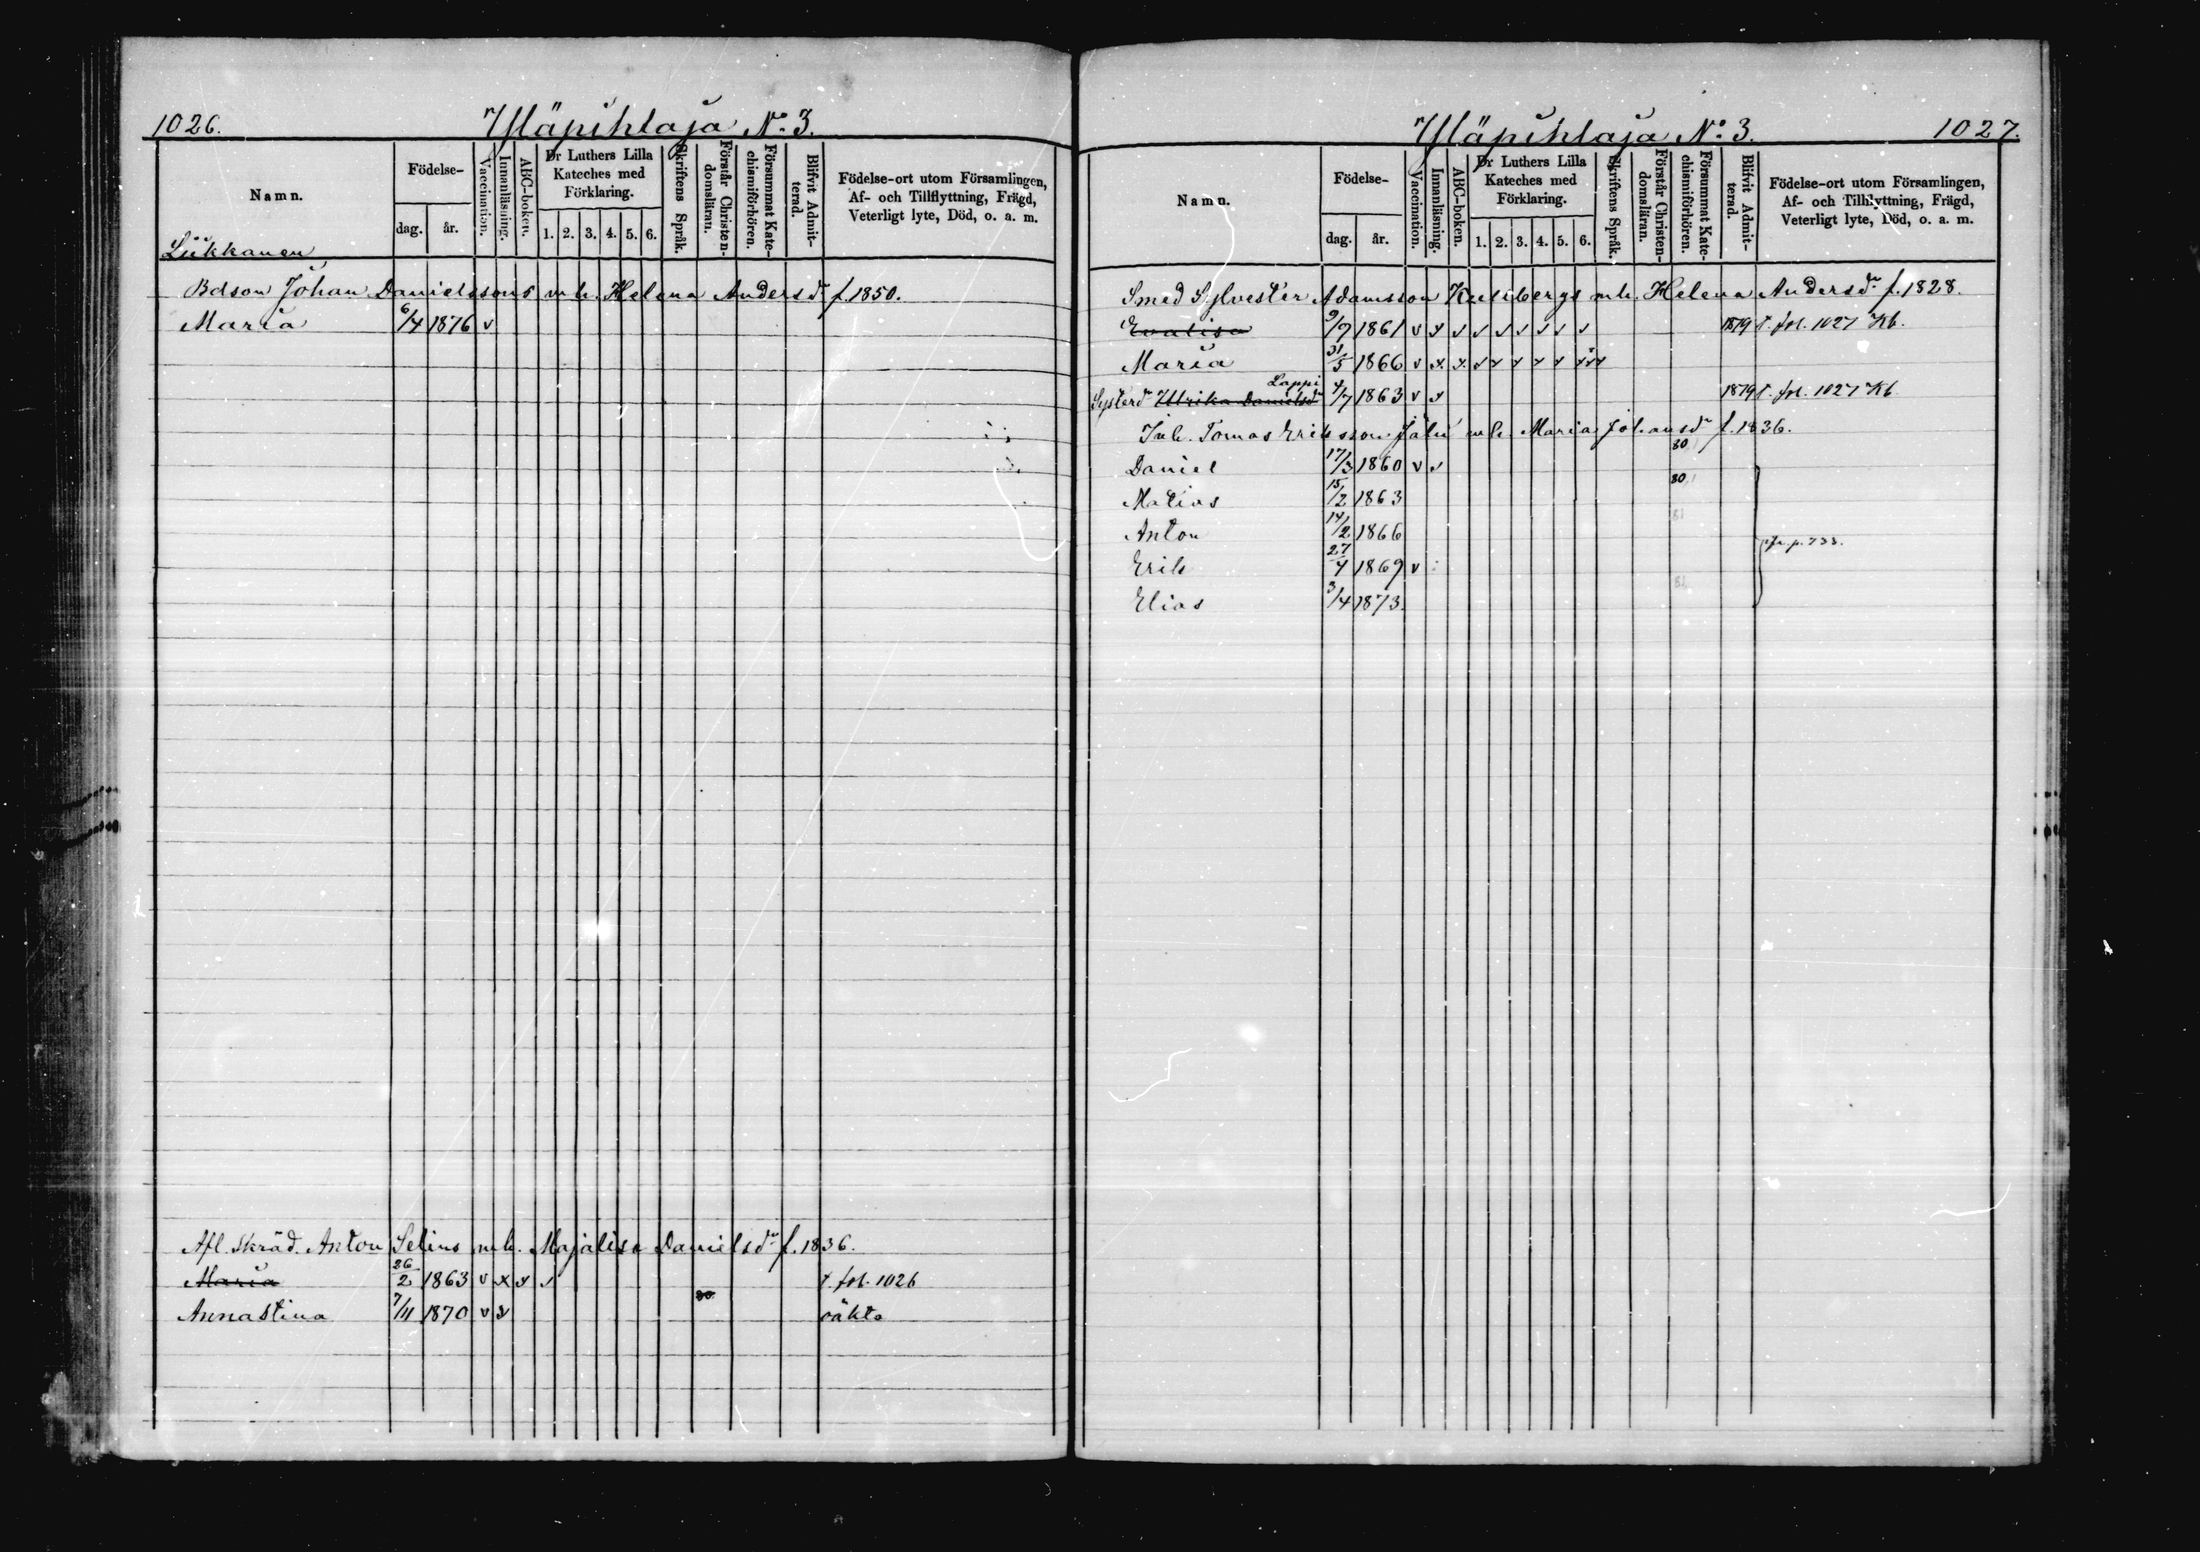 1026.
Yläpihlaja No. 3.
Namn.
Födelse-
dag. år.
Vaccination.
Innanläsning.
ABC-boken.
Dr Luthers Lilla Kateches med Förklaring.
1. 2. 3. 4. 5. 6.
Skriftens Språk.
Förstår Christendomsläran.
Försummat Katechismiförhören.
Blifvit Admitterad.
Födelse-ort utom Församlingen,
Af- och Tillflyttning, Frägd,
Veterligt lyte, Död, o. a. m.
Liikkanen
Bdson Johan Danielssons m.h. Helena Andersdr f. 1850.
Maria 6/4 1876 v
Afl. Skräd. Anton Selins m.h. Majalisa Danielsdr f. 1836.
Maria 26/2 1863 v x v v t. fol. 1026
Annastina 7/11 1870 v v 80 oäkta
Yläpihlaja No. 3.
1027.
Namn.
Födelse-
dag. år.
Vaccination.
Innanläsning.
ABC-boken.
Dr Luthers Lilla Kateches med Förklaring.
1. 2. 3. 4. 5. 6.
Skriftens Språk.
Förstår Christendomsläran.
Försummat Katechismiförhören.
Blifvit Admitterad.
Födelse-ort utom Församlingen,
Af- och Tillflyttning, Frägd,
Veterligt lyte, Död, o. a. m.
Smed Sylvester Adamsson Kullbergs m.h. Helena Andersdr f. 1828.
Evalisa 9/7 1861 v x v v v v v v v 1879 t. fol. 1027 Kb.
Maria 31/5 1866 v x x v v v v v
Lappi
Systerdr Ulrika Danielsdr 4/7 1863 v v 1879 t. fol. 1027 Kb
Inh. Tomas Eriksson Jälii m.h. Maria Johansdr f. 1836.
Daniel 17/3 1860 v v 80
Matias 15/2 1863 80
Anton 14/2 1866 81
Erik 27/4 1869 v
Elias 3/4 1873. 81
p. 733.